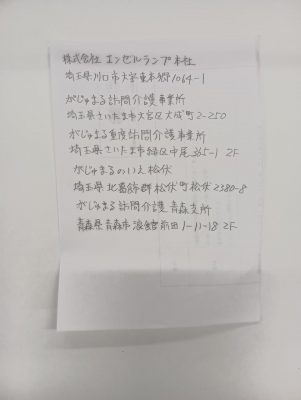 株式会社 エンゼルランプ本社
埼玉県川口市大字東本郷1064-1
がじゅまる訪問介護事業所
埼玉県さいたま市大宮区大成町2-250
がじゅまる重度訪問介護事業所
埼玉県さいたま市緑区中尾365-1 2F
がじゅまるのいえ松伏
埼玉県北葛飾郡松伏町松伏2380-8
がじゅまる訪問介護 青森支所
青森県青森市浪館前田1-11-18 2F